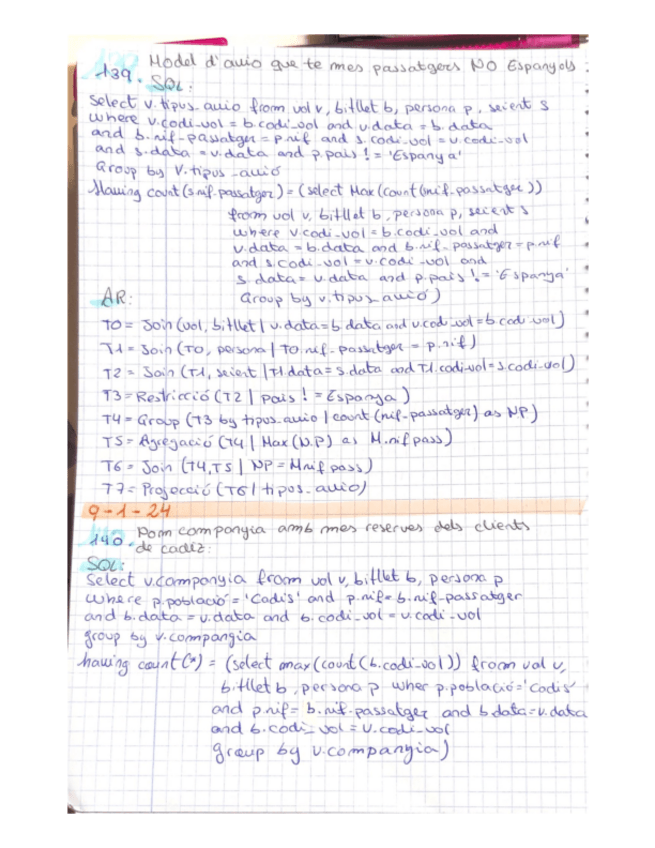 139. Model d'avio que te mes passatgers NO Espanyols
SQL:
Select v.tipus_avio from vol v, bitllet b, persona p, seient s
where v.codi_vol = b.codi_vol and v.data = b.data
and b.nif_passatger = p.nif and s.codi_vol = v.codi_vol
and s.data = v.data and p.pais != 'Espanya'
Group by v.tipus_avio
Having count(s.nif_passatger) = (select Max(count(nif_passatger))
from vol v, bitllet b, persona p, seient s
where v.codi_vol = b.codi_vol and
v.data = b.data and b.nif_passatger = p.nif
and s.codi_vol = v.codi_vol and
s.data = v.data and p.pais != 'Espanya'
Group by v.tipus_avio)
AR:
T0 = Join (vol, bitllet | v.data = b.data and v.codi_vol = b.codi_vol)
T1 = Join (T0, persona | T0.nif_passatger = p.nif)
T2 = Join (T1, seient | T1.data = s.data and T1.codi-vol = s.codi-vol)
T3 = Restricció (T2 | pais != Espanya)
T4 = Group (T3 by tipus_avio | count (nif-passatger) as NP)
T5 = Agregació (T4 | Max (N.P) as M.nif pass)
T6 = Join (T4, T5 | NP = Mnif pass)
T7 = Projecció (T6 | tipos_avio)
9-1-24
140. Nom companyia amb mes reserves dels clients
de cadiz:
SQL:
Select v.companyia from vol v, bitllet b, persona p
where p.població = 'Cadis' and p.nif = b.nif-passatger
and b.data = v.data and b.codi_vol = v.codi-vol
group by v.companyia
having count(*) = (select max(count(b.codi_vol)) from vol v,
bitllet b, persona p wher p.població = 'Cadis'
and p.nif = b.nif-passatger and b.data = v.data
and b.codi_vol = v.codi_vol
group by v.companyia)